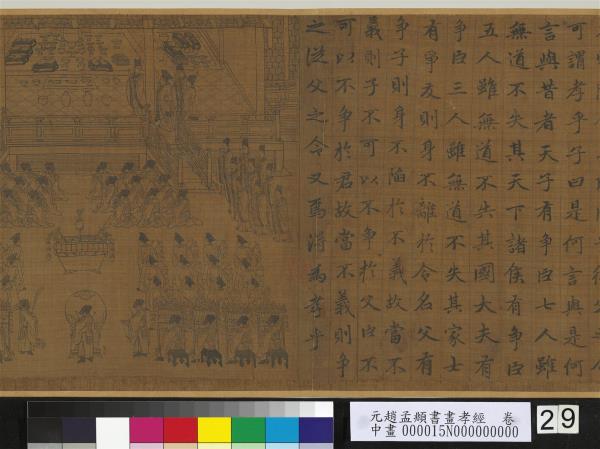 可謂孝乎子曰是何言與是何
言與昔者天子有爭臣七人雖
無道不失其天下諸侯有爭臣
五人雖無道不失其國大夫有
爭臣三人雖無道不失其家士
有爭友則身不離於令名父有
爭子則身不陷於不義故當不
義則子不可以不爭於父臣不
可以不爭於君故當不義則爭
之從父之令又焉得為孝乎
元趙孟頫書畫孝經 卷
中畫 000015N000000000
29